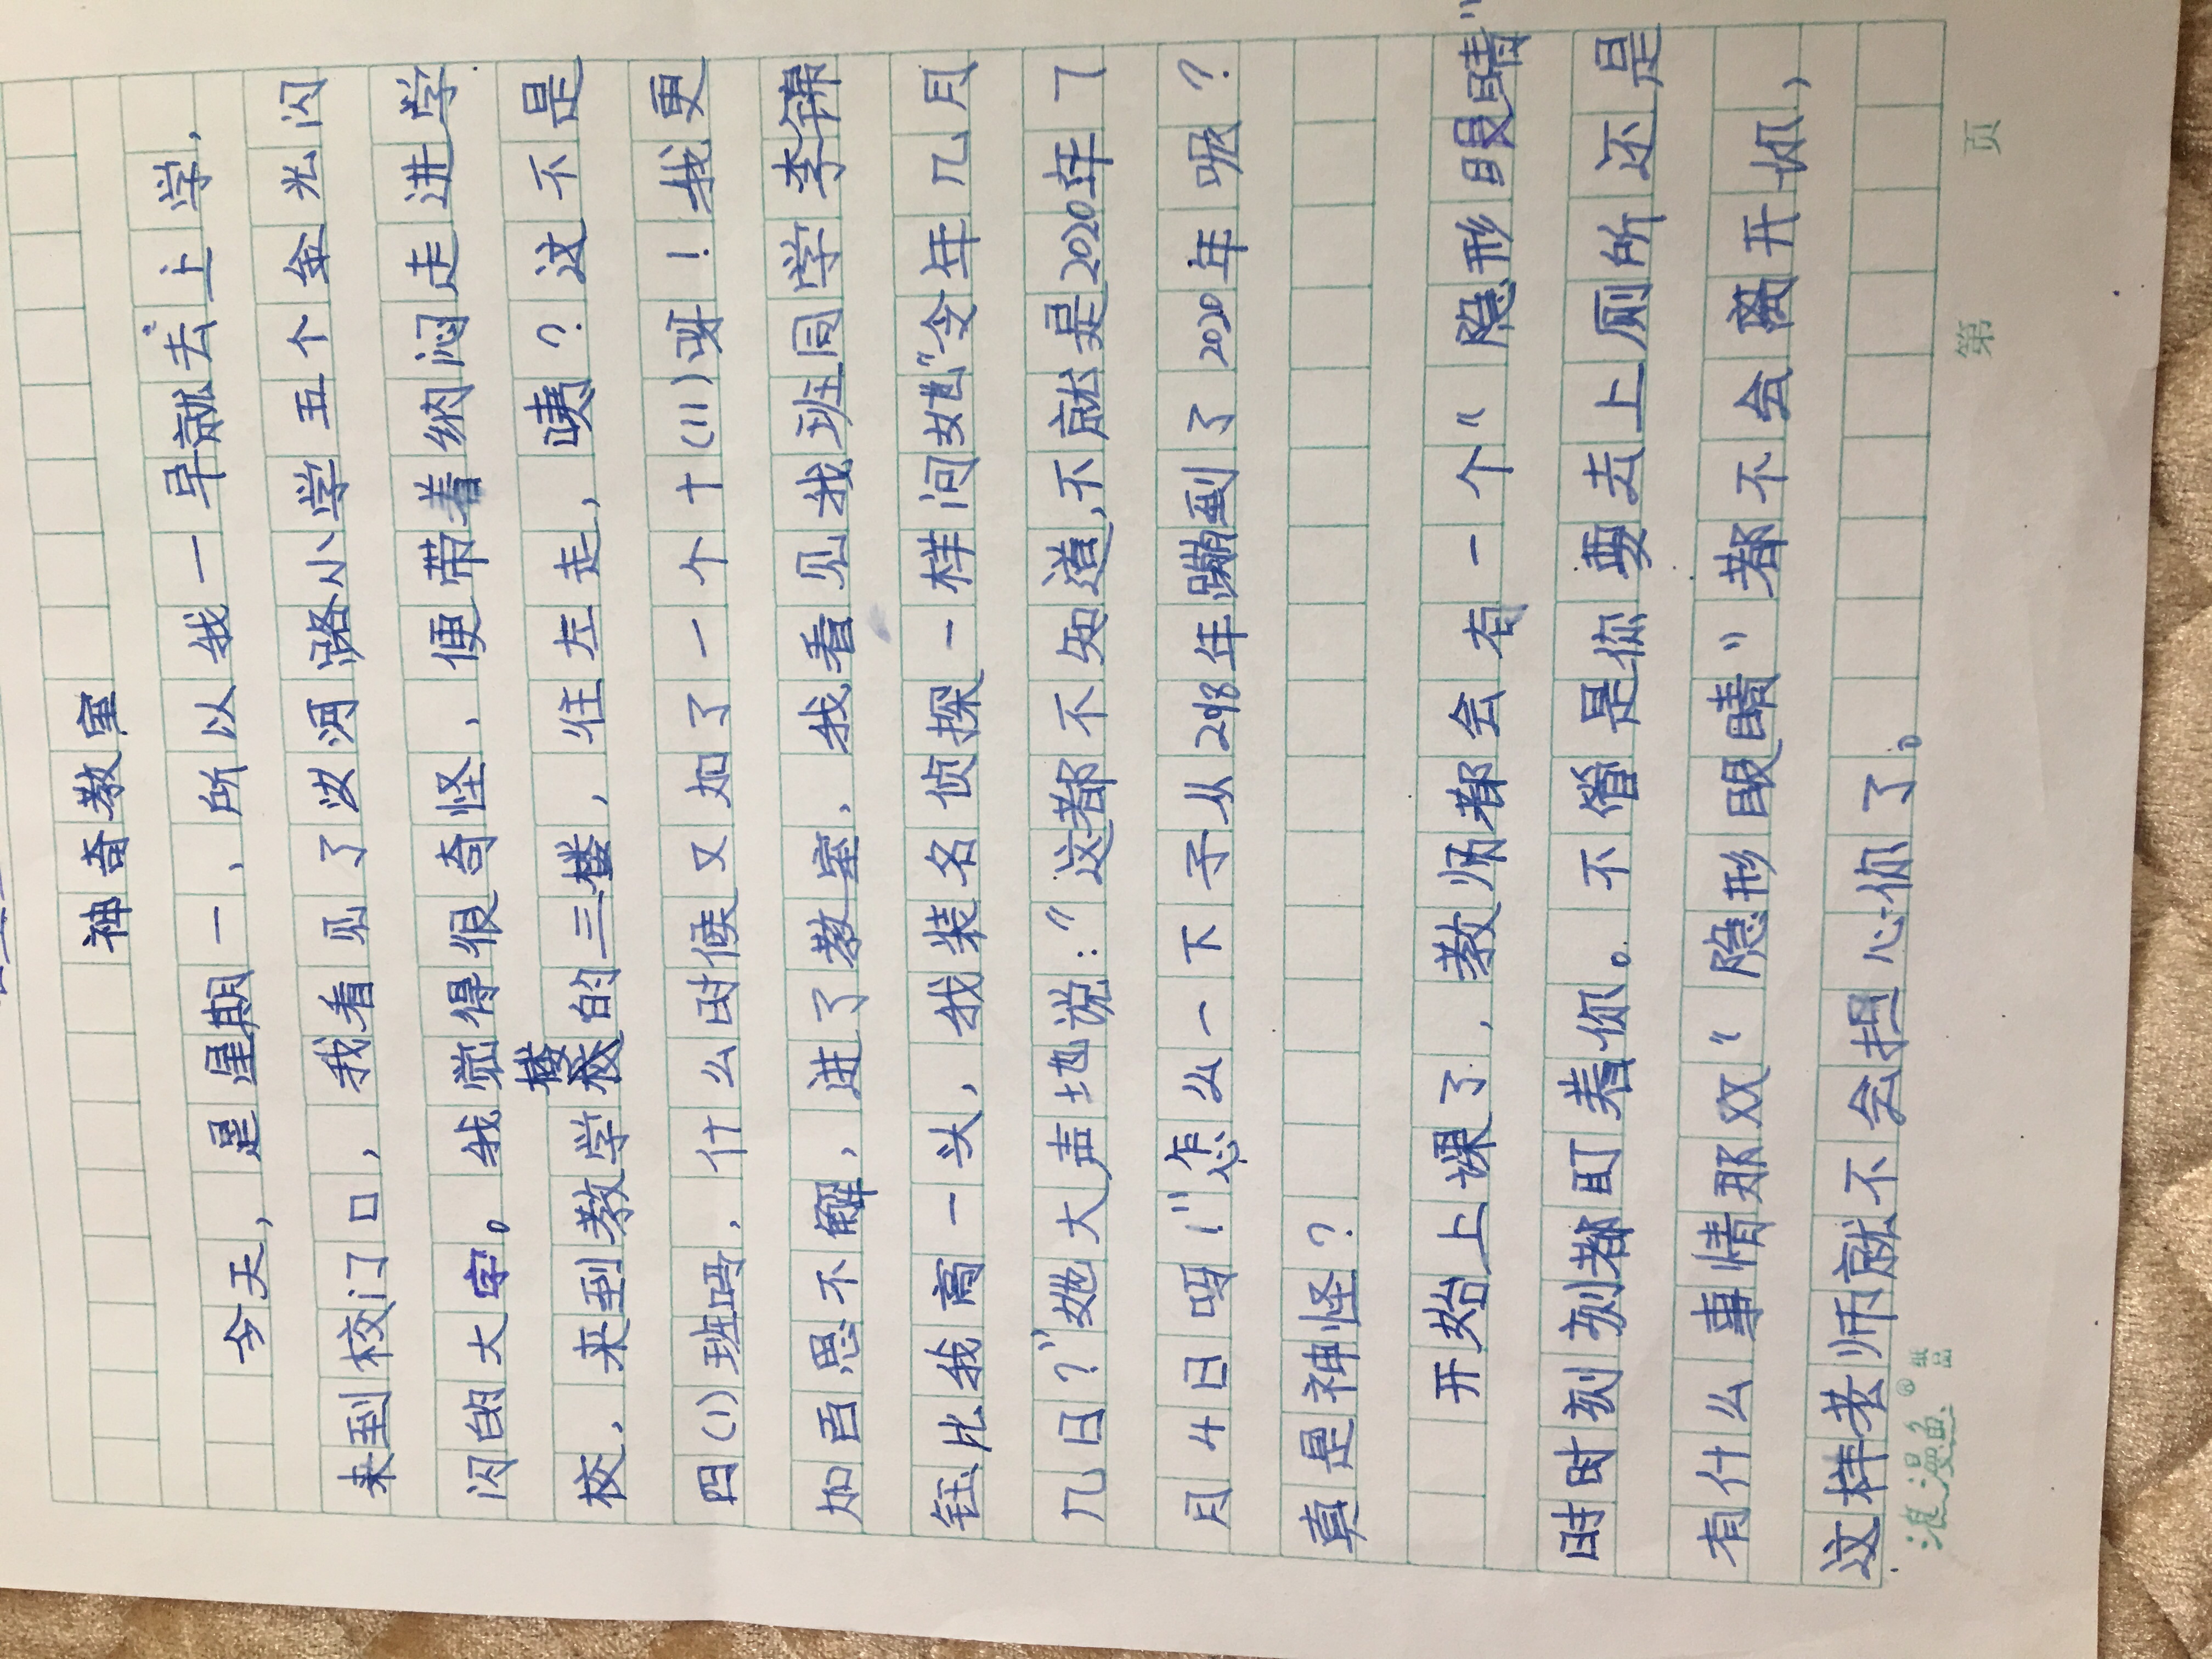 神奇教室
今天，是星期一，所以我一早就去上学，
来到校门口，我看见了汝河路小学五个金光闪
闪的大字。我觉得很奇怪，便带着纳闷走进学
校，来到教学楼的三楼，往左走，咦？这不是
四(1)班吗，什么时候又加了一个十(11)呀！我更
加百思不解，进了教室，我看见我班同学李锦
钰比我高一头，我装名侦探一样问她“今年几月
几日？”她大声地说：“这都不知道，不就是2020年7
月4日呀！”怎么一下子从2498年蹦到了2020年呢？
真是神怪？
开始上课了，教师都会有一个“隐形眼睛”
时时刻刻都盯着你。不管是你要去上厕所还是
有什么事情那双“隐形眼睛”都不会离开你，
这样老师就不会担心你了。
浪漫鱼®纸品
第 页